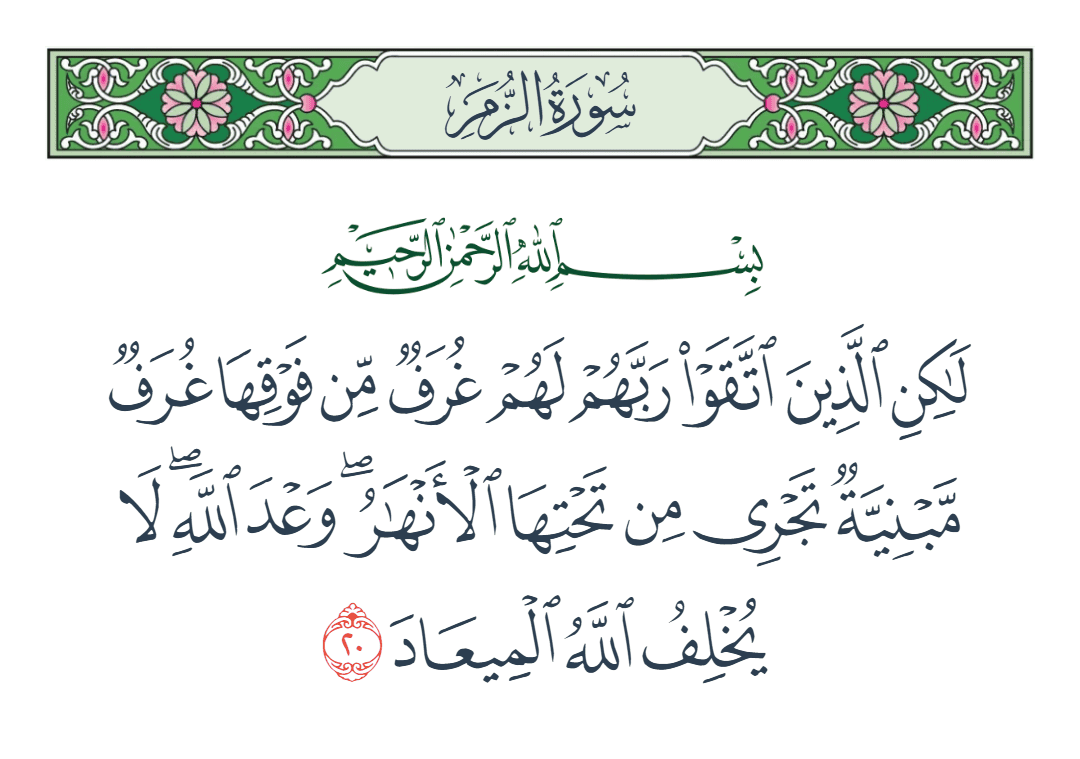 سُورَةُ الزُّمَرِ
بِسْمِ ٱللَّهِ ٱلرَّحْمَٰنِ ٱلرَّحِيمِ
لَٰكِنِ ٱلَّذِينَ ٱتَّقَوْا۟ رَبَّهُمْ لَهُمْ غُرَفٌ مِّن فَوْقِهَا غُرَفٌ
مَّبْنِيَّةٌ تَجْرِى مِن تَحْتِهَا ٱلْأَنْهَٰرُ ۖ وَعْدَ ٱللَّهِ ۖ لَا
يُخْلِفُ ٱللَّهُ ٱلْمِيعَادَ ٢٠